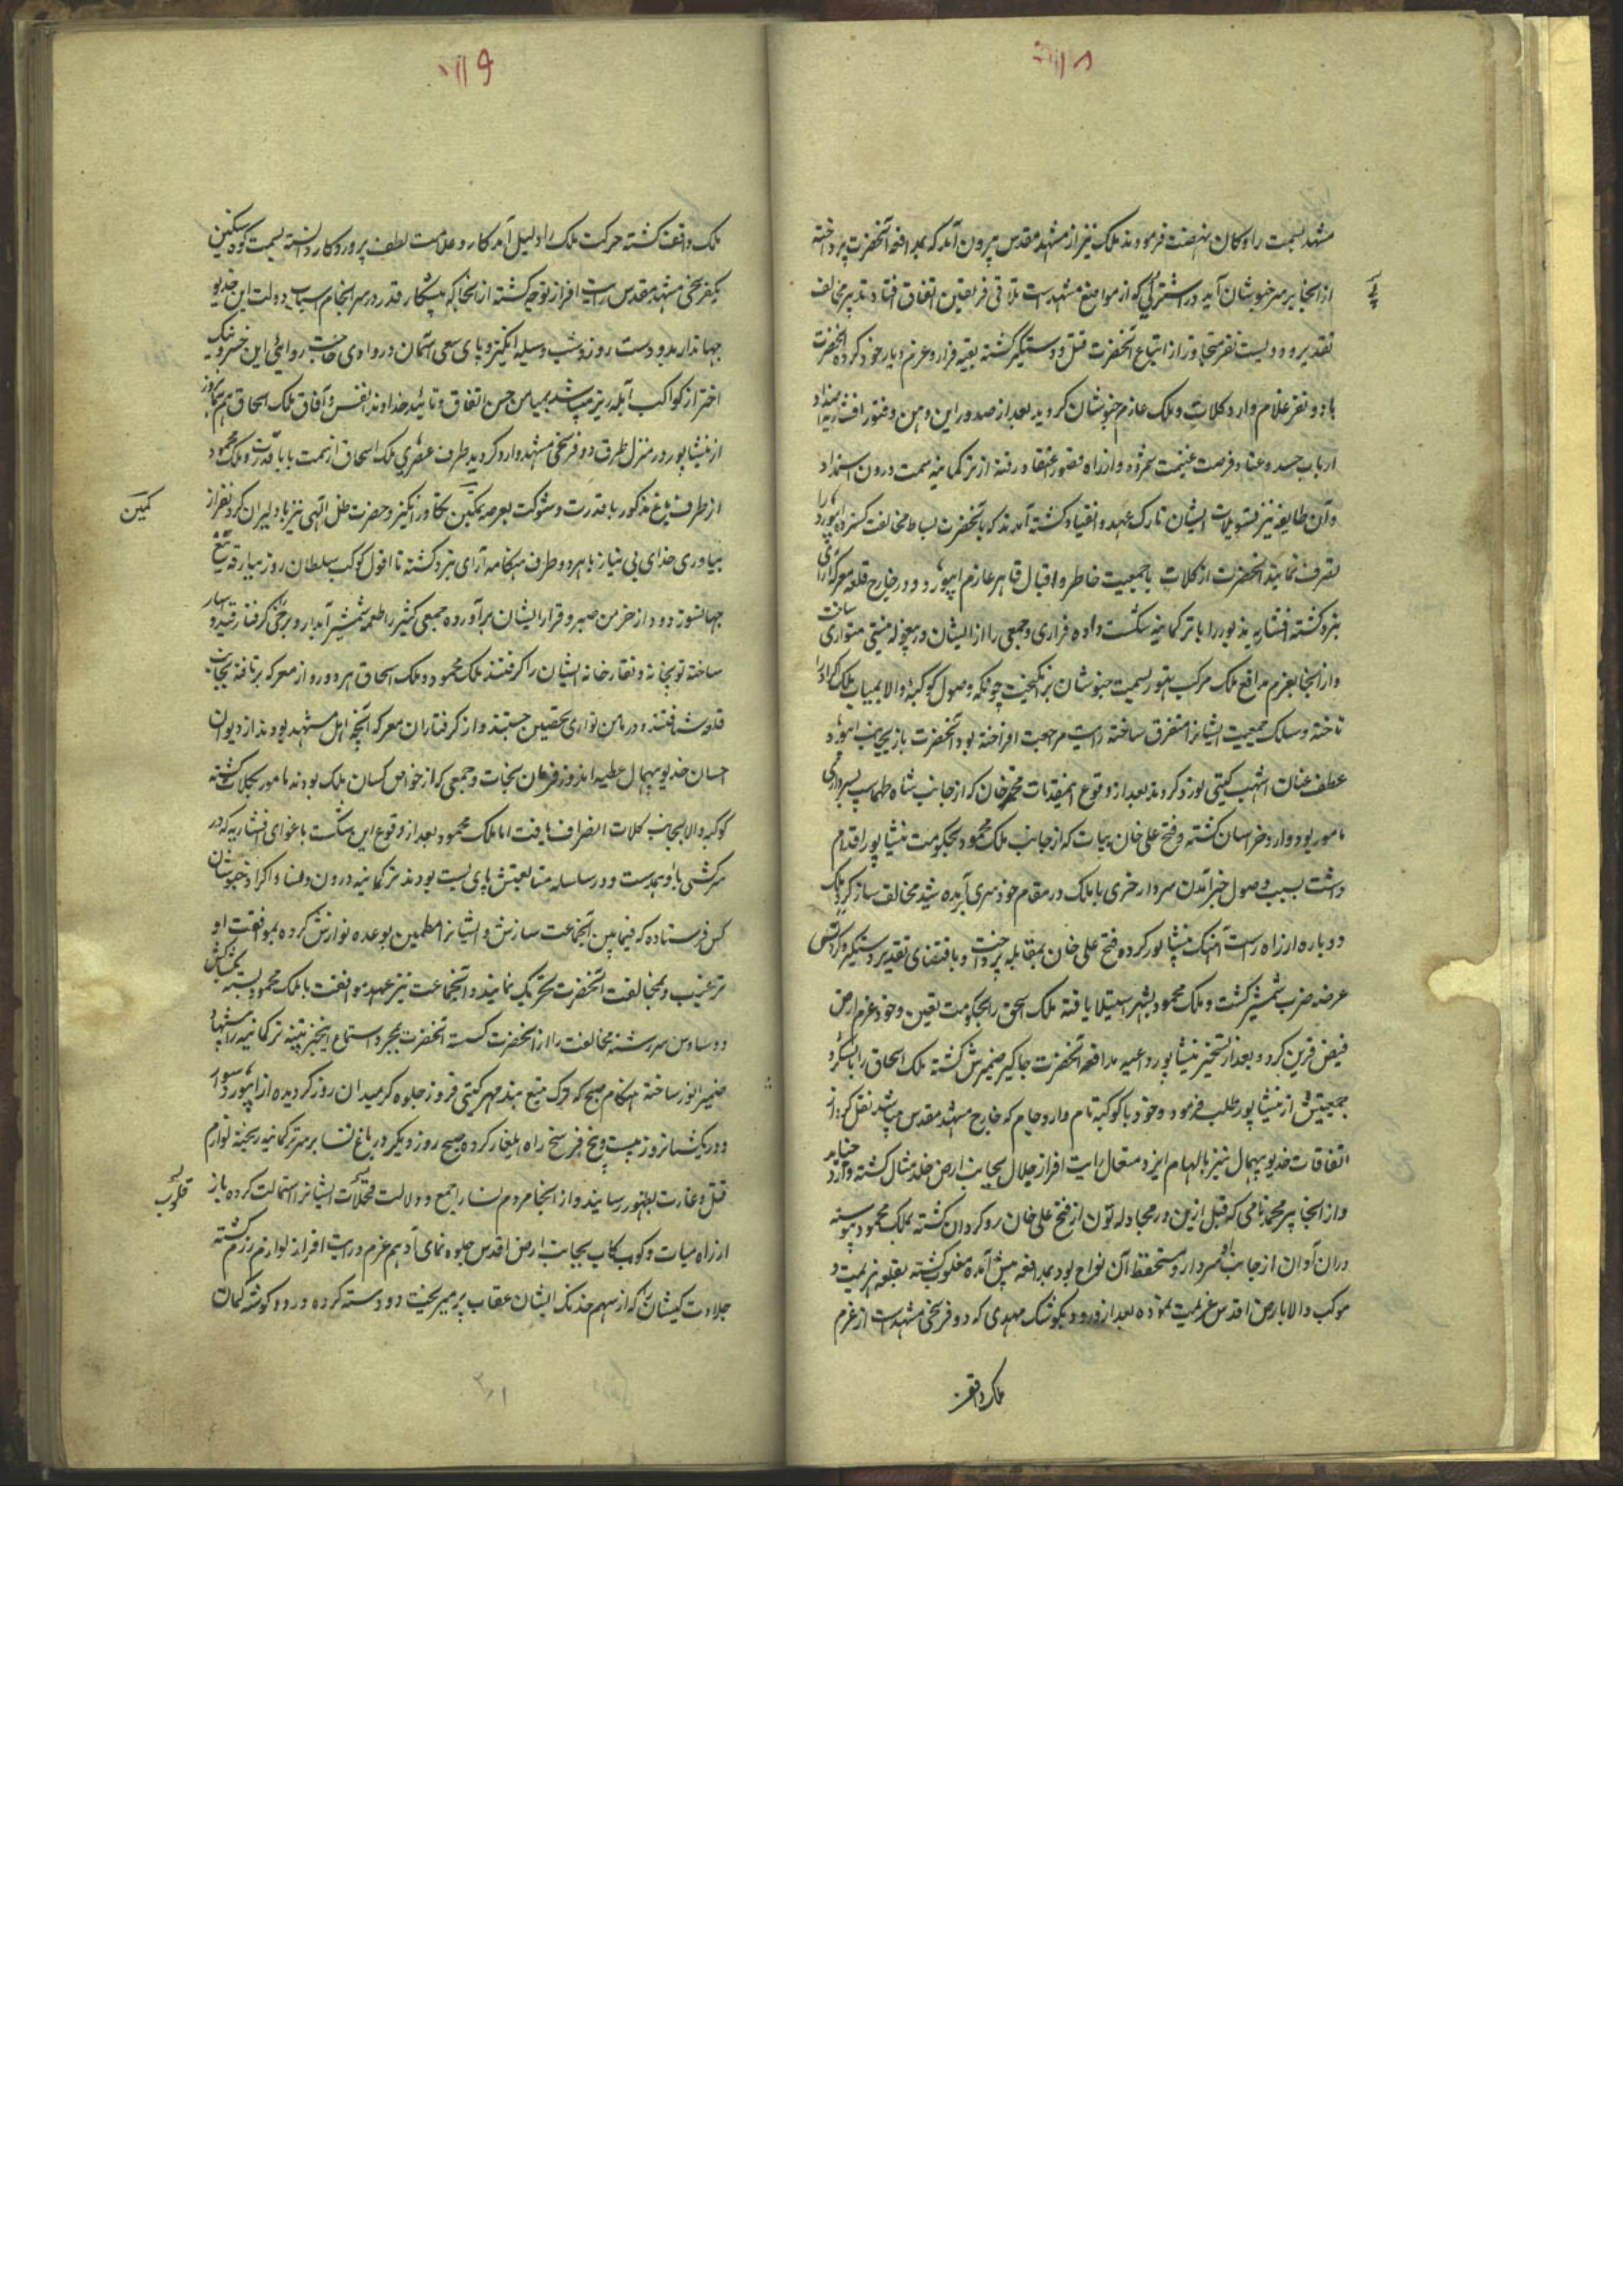 ۱۱۸
مشهد بسمت رادکان نهضت فرمودند ملک نیز از مشهد مقدس بیرون آمد که بمدافعه آنحضرت پرداخته
از آنجا بر سر خبوشان آید در اشترپی که از مواضع مشهد است تلاقی فریقین اتفاق افتاد تدبیر مخالف
تقدیر و دویست نفر متجاوز از اتباع آنحضرت قتل و دستگیر گشته بقیه فرار و عزم دیار خود کرده آنحضرت
با دو نفر غلام وارد کلات و ملک عازم خبوشان گردید بعد از صدور این وهن و فتور افشاریه
ارباب حسد و عناد فرصت غنیمت شمرده و از راه قصور اعتقاد رفته از ترکمانیه سمت درون استمداد
و آن طایفه نیز بتسویلات ایشان تارک عهد و انقیاد گشته آمدند که با آنحضرت بساط مخالفت گسترده ابیورد را
تصرف نمایند آنحضرت از کلات با جمعیت خاطر و اقبال قاهر عازم ابیورد و در خارج قلعه معرکه آرای
نبرد گشته افشاریه مذبور را با ترکمانیه شکست داده فراری و جمعی را از ایشان در معجوله نیستی متواری ساخت
و از آنجا بعزم مدافع ملک مرکب تهور بسمت خبوشان برانگیخت چونکه وصول کوکبه والا بمیاب ملک اکراد را
تاخته و سلک جمعیت ایشانرا متفرق ساخته رایت مراجعت افراخته بود آنحضرت باز بجانب ابیورد
عطف عنان اشهب گیتی نورد کردند بعد از وقوع اینمقدمات محمد خان که از جانب شاه طهماسب بسرداری
مامور بود وارد خراسان گشته و فتح علی خان بیات که از جانب ملک محمود بحکومت نیشاپور اقدام
داشت بسبب وصول خبر آمدن سردار خری با ملک در مقام خودسری آبده شد مخالف ساز کرد ملک
دوباره از راه راست آهنک نیشاپور کرده فتح علی خان بمقابله پرداخت و باقتضای تقدیر دستگیر و گردنش
عرضه ضرب شمشیر گشت و ملک محمود بشهر استیلا یافته ملک اسحق را بحکومت تعیین و خود عزم ارض
فیض قرین کرد و بعد از تسخیر نیشاپور داعیه مدافعه آنحضرت جاگیر ضمیرش گشته ملک اسحاق را با لشکر و
جمعیتش از نیشاپور طلب فرمود و خود با کوکبه تام وارد جام که خارج مشهد مقدس میباشد نقل کرد از
اتفاقات خدیو بیهمال نیز بالهام ایزد متعال رایت افراز جلال بجانب ارض خلد مثال گشته وارد
و از آنجا پیر محمد نامی که قبل ازین در مجادله تون از فتح علی خان روگردان گشته بملک محمود پیوسته
در آن آوان از جانب او سردار و مستحفظ آن نواح بود بمدافعه پیش آمده مغلوب گشته بقلعه هزیمت و
موکب والا بارض اقدس عزیمت نموده بعد از ورود بکوشک مهدی که دو فرسخی مشهد است از عزم
ملک واقف
۱۱۹
ملک واقف گشته حرکت ملک را دلیل آمد کار و علامت لطف پروردگار دانسته بسمت کوه سنگین
یکفرسخی مشهد مقدس رایت افراز توجه گشته از آنجا که پیشکار قدر در سرانجام اسباب دولت این خدیو
جهاندار بدو دست روز و شب وسیله انگیز و پای سعی آسمان در وادی حاجت روایی این خسرو نیک
اختر از کواکب آبله ریز میباشد بمیامن حسن اتفاق و تائید خداوند انفس و آفاق ملک اسحاق هم همانروز
از نیشاپور در منزل طرق دو فرسخی مشهد وارد گردید طرف عصری ملک اسحاق از سمت بابا قدرت و ملک محمود
از طرف باغ مذکور با قدرت و شوکت بعرصه کین تکاور انگیز و حضرت ظل الهی نیز با دلیران گردنفراز
کمین
بیاوری خدای بی نیاز با هر دو طرف هنگامه آرای نبرد گشته تا افول کوکب سلطان روز ببارقه تیغ
جهانسوز دود از خرمن صبر و قرار ایشان برآورده جمعی کثیر را طعمه شمشیر آبدار و برخی را گرفتار قید اسار
ساخته توپخانه و نقارخانه ایشان را گرفتند ملک محمود و ملک اسحاق هر دو رو از معرکه برتافته بجانب
قلعه شتافتند و در مامن تواری تحصین جستند و از گرفتاران معرکه آنچه اهل مشهد بودند از دیوان
احسان خدیو بیهمال عطیه اندوز فرمان نجات و جمعی که از خواص کسان ملک بودند مامور بکلات گشته
کوکبه والا بجانب کلات انصراف یافت اما ملک محمود بعد از وقوع این شکست باغوای افشاریه که در
سرکشی با او همدست و در سلسله متابعتش پای بست بودند نزد ترکمانیه درون و نسا و اکراد خبوشان
کس فرستاده که فیمابین آنجماعت سازش و ایشانرا مطمئن بوعده نوازش کرده بموافقت او
ترغیب و بمخالفت آنحضرت تحریک نمایند و آنجماعت نیز عهد موافقت با ملک محمود بسته
و وساوس سررشته مخالفت را از آنحضرت گسسته آنحضرت بمجرد استماع اینخبر تنبیه ترکمانیه را پیشنهاد
ضمیر انور ساخته هنگام صبح که ترک تیغ بند مهر گیتی فروز جلوه گر میدان روز گردیده از ابیورد سوار
و در یکشبانروز بیست و پنج فرسخ راه ایلغار کرده صبح روز دیگر در باغ نسا بر سر ترکمانیه ریخته لوازم
قتل و غارت بظهور رسانیدند و از آنجا مردم نسا را جمع و دلالت فحلات ایشانرا استمالت کرده باز
قلوب
از راه میات و کوب کاب بجانب ارض اقدس جلوه نمای ادهم عزم و رایت افراز لوازم رزم گشته
جلادت کیشان را که از سهم خدنک ایشان عقاب پر میریخت دو دسته کرده و در دو گوشه کمان